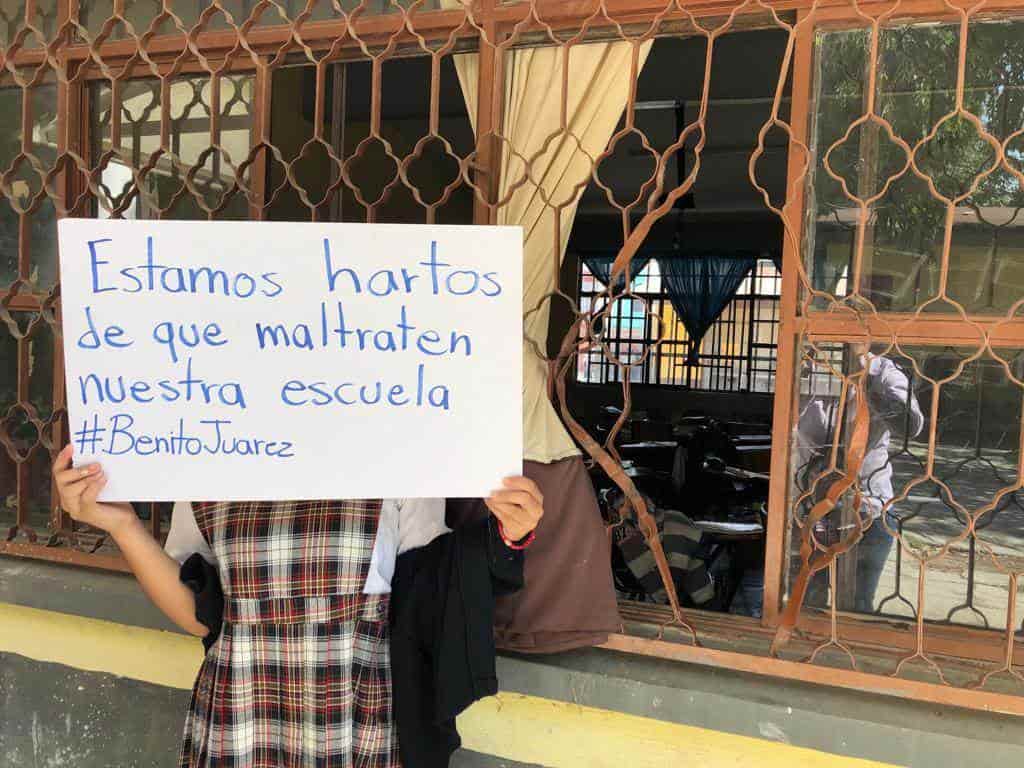 Estamos hartos
de que maltraten
nuestra escuela
#BenitoJuarez